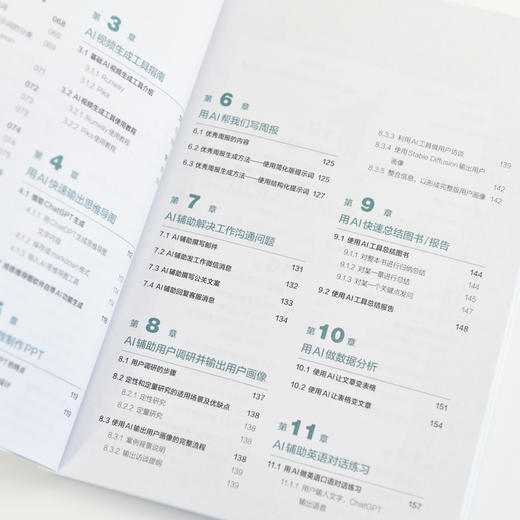 068
069
069
071
072
072
073
074
074
第 3 章
AI视频生成工具指南
3.1 基础AI视频生成工具介绍
3.1.1 Runway
3.1.2 Pika
3.2 AI视频生成工具使用教程
3.2.1 Runway使用教程
3.2.2 Pika使用教程
第 4 章
用AI快速输出思维导图
4.1 借助ChatGPT生成
4.1.1 用ChatGPT生成思维导图
文字内容
4.1.2 保存成markdown格式
4.1.3 插入AI思维导图工具
章
制作PPT
第 6 章
用AI帮我们写周报
6.1 优秀周报的内容 125
6.2 优秀周报生成方法——使用简化版提示词 125
6.3 优秀周报生成方法——使用结构化提示词 127
第 7 章
AI辅助解决工作沟通问题
7.1 AI辅助撰写邮件 131
7.2 AI辅助发工作微信消息 132
7.3 AI辅助撰写公关文案 133
7.4 AI辅助回复客服消息 134
第 8 章
AI辅助用户调研并输出用户画像
8.1 用户调研的步骤 137
8.2 定性和定量研究的适用场景及优缺点 138
8.2.1 定性研究 138
8.2.2 定量研究 138
8.3 使用AI输出用户画像的完整流程 138
8.3.1 案例背景说明 139
8.3.2 输出访谈提纲 139
8.3.3 利用AI工具做用户访谈
8.3.4 使用Stable Diffusion输出用户
画像
8.3.5 整合信息，以形成完整版用户画像 142
第 9 章
用AI快速总结图书/报告
9.1 使用AI工具总结图书 144
9.1.1 对整本书进行归纳总结 144
9.1.2 对某一章进行总结 145
9.1.3 对某一个关键点发问 147
9.2 使用AI工具总结报告 148
第 10 章
用AI做数据分析
10.1 使用AI让文章变表格 151
10.2 使用AI让表格变文章 154
第 11 章
AI辅助英语对话练习
11.1 用AI做英语口语对话练习 157
11.1.1 用户输入文字，ChatGPT
输出语音